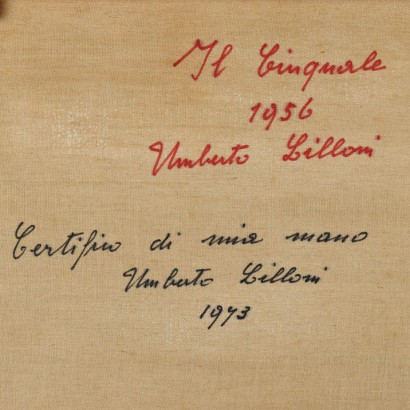 Il Cinquale
1956
Umberto Lilloni
Certifico di mia mano
Umberto Lilloni
1973